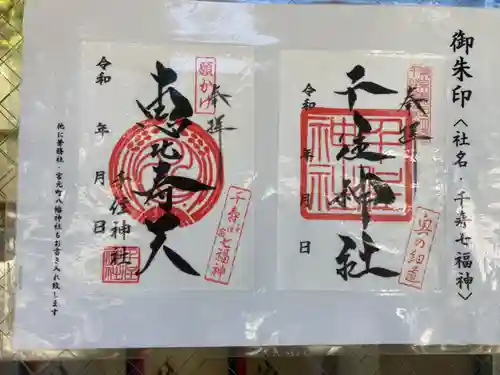 御朱印〈社名・千寿七福神〉
奉拝
千住神社
令和　年　月　日
奥の細道
奉拝
願かけ
恵比寿天
千住神社
令和　年　月　日
千寿七福神
他に兼務社・宮元町八幡神社もお書き入れ致します